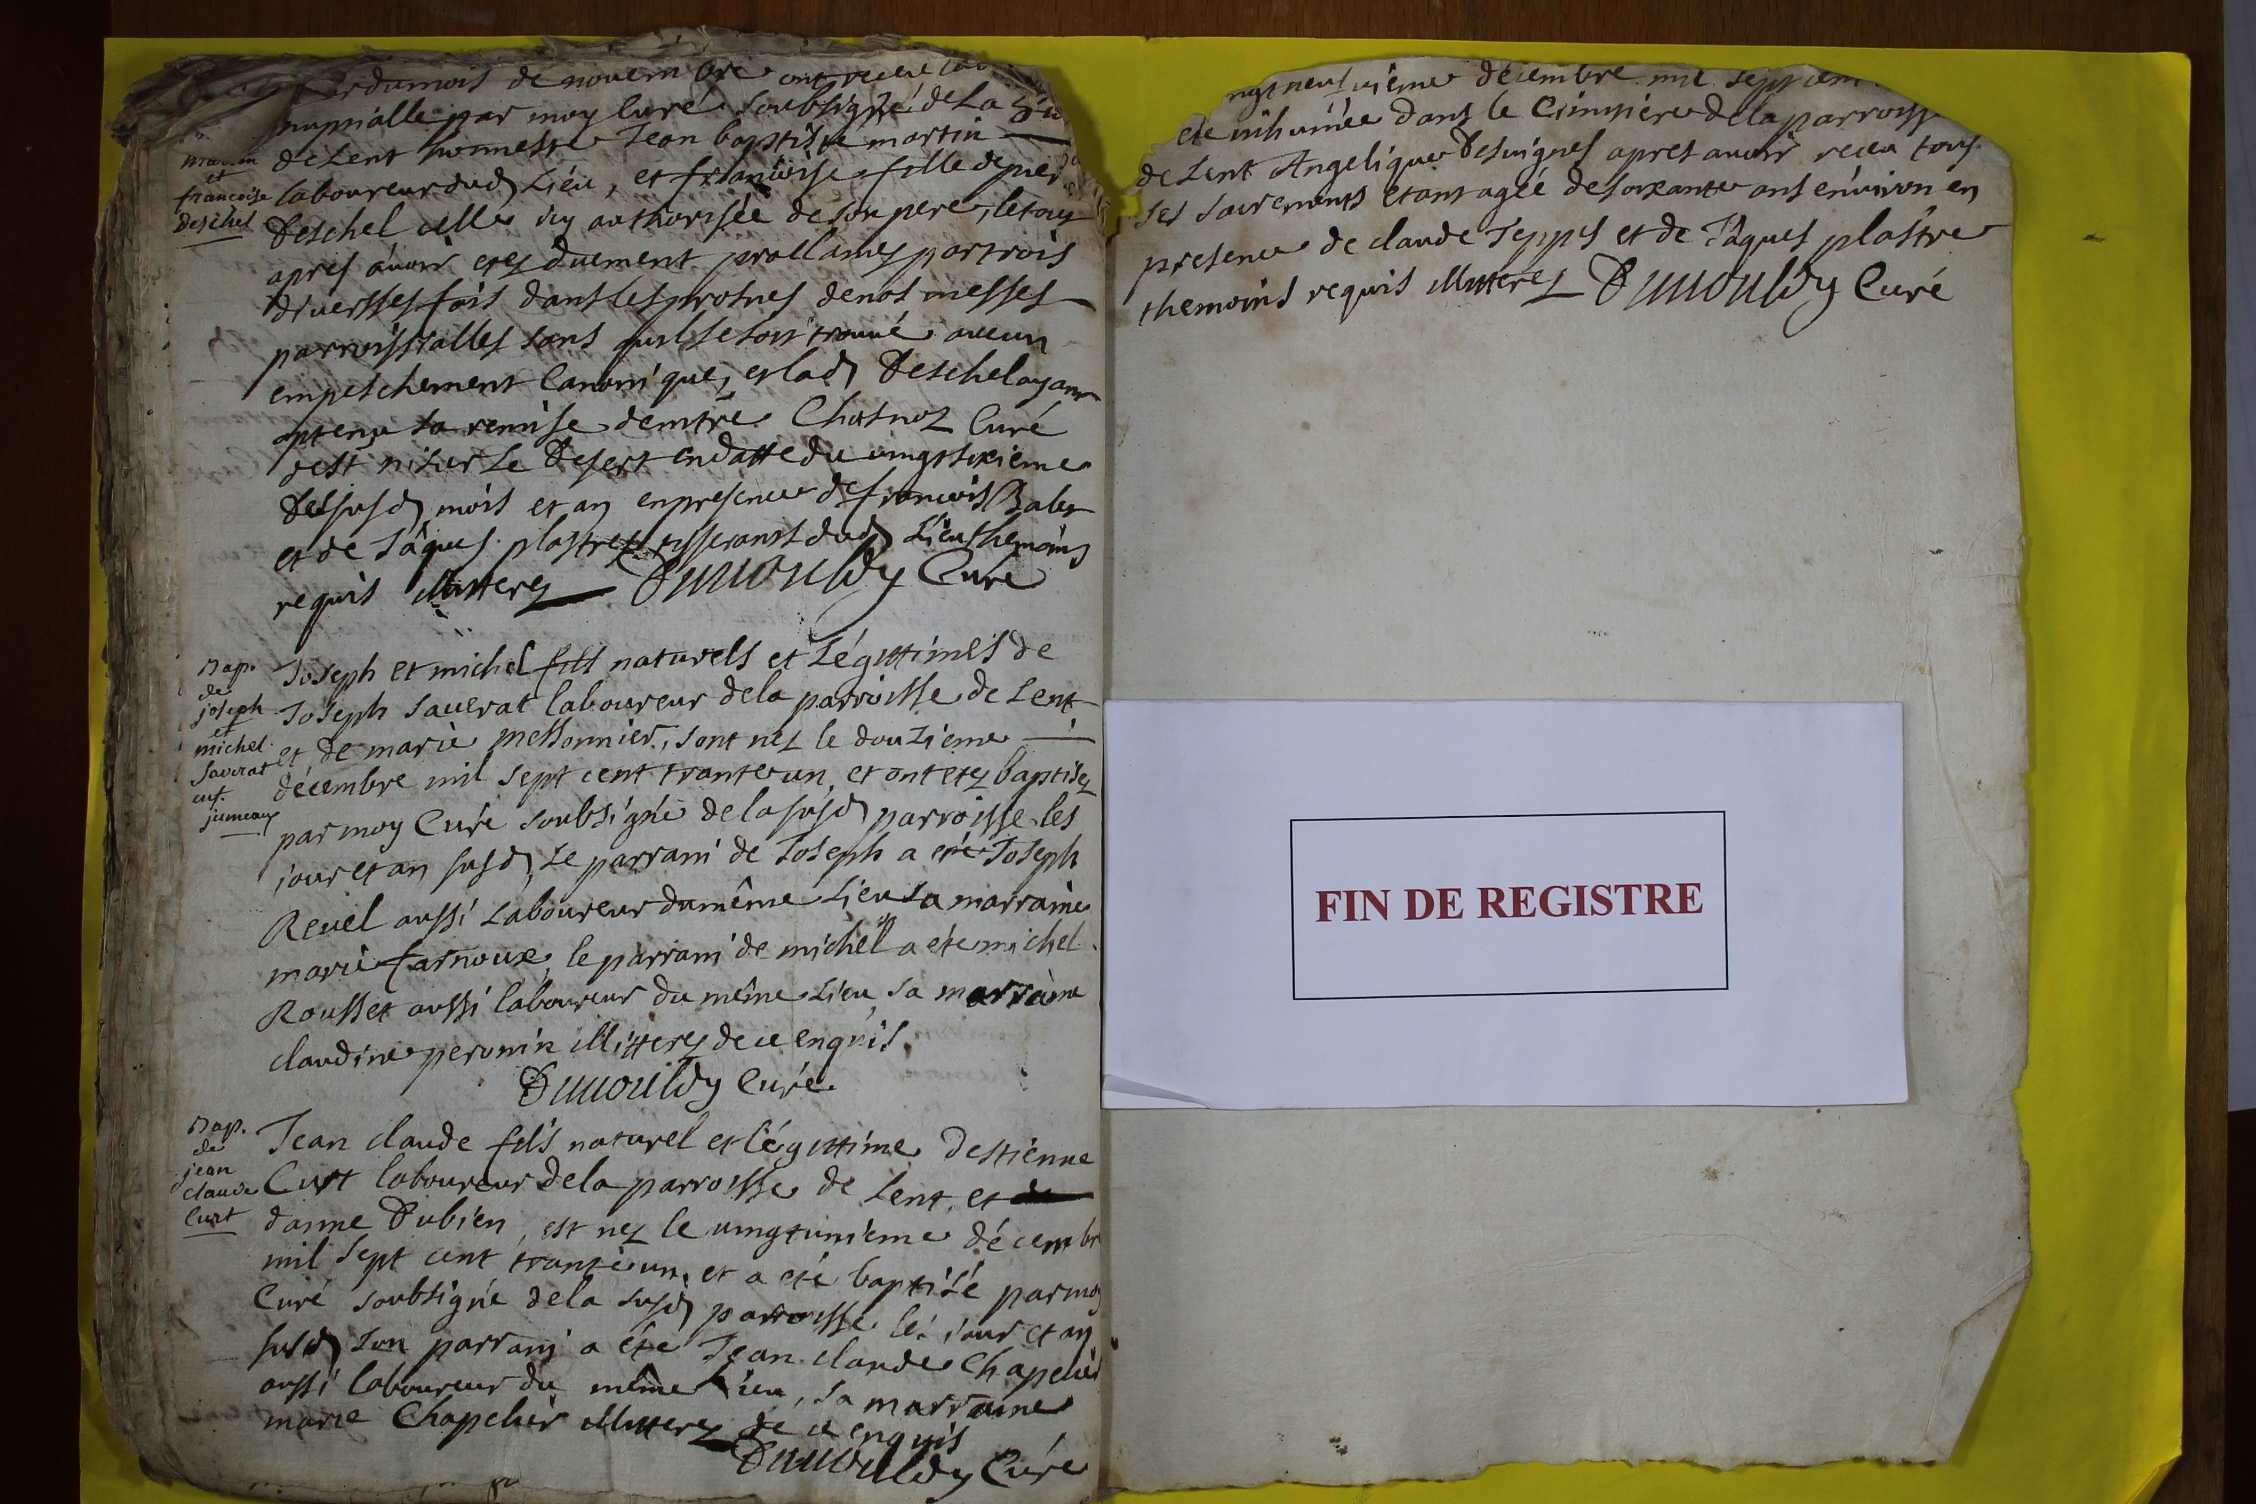 du mois de novembre ont receu
nuptialle par moy Curé soubsigné de la
de Lent honneste Jean baptiste martin
laboureur dud Lieu, et francoise fille de
Deschel celle icy authorisée de son pere, le tout
apres avoir etez duement proclamez par trois
diversses fois dans les prosnes de nos messes
parroissialles sans quil se soit trouvé aucun
empeschement Canonique, et lad Deschel ayant
optenu sa remise de mtre Chosnoz Curé
de st nisier Le Desert en datte du vingt sixieme
des susd mois et an en presence de francois
et de Jâques plastre tisserants dud Lieu themoins
requis illitterez Dumouldy Curé
martin
et
francoise
deschel
Bap.
de
joseph
et
michel
Saverat
enf.
jumeaux
Joseph et michel fils naturels et Légittimes de
Joseph Saverat laboureur de la parroisse de Lent
et de marie messonnier, sont nez le douzieme
décembre mil sept cent trante un, et ont etez baptisez
par moy Curé soubsigné de la susd parroisse les
jour et an susd, Le parrain de Joseph a eté Joseph
Revel aussi Laboureur du même Lieu sa marraine
marie farnoux, le parrain de michel a eté michel
Rousset aussi laboureur du même Lieu, sa marraine
claudine peronin illitterez de ce enquis.
Dumouldy Curé
Bap.
de
jean
claude
Curt
Jean claude fils naturel et légittime destienne
Curt laboureur de la parroisse de Lent, et
danne Dubien, est nez le vingtunieme décembre
mil sept cent trante un, et a eté baptisé par moy
Curé soubsigné de la susd parroisse les jour et an
susd, son parrain a eté Jean claude Chapelier
aussi laboureur du même Lieu, sa marraine
marie Chapelier illitterez de ce enquis
Dumouldy Curé
neufvieme décembre mil sept cent
eté inhumée dans le Cimitiere de la parroisse
de Lent Angelique Desvignes apres avoir receu tous
ses sacrements etant agée de soixante ans environ en
presence de claude Teppes et de Jâques plastre
themoins requis illitterez Dumouldy Curé
FIN DE REGISTRE